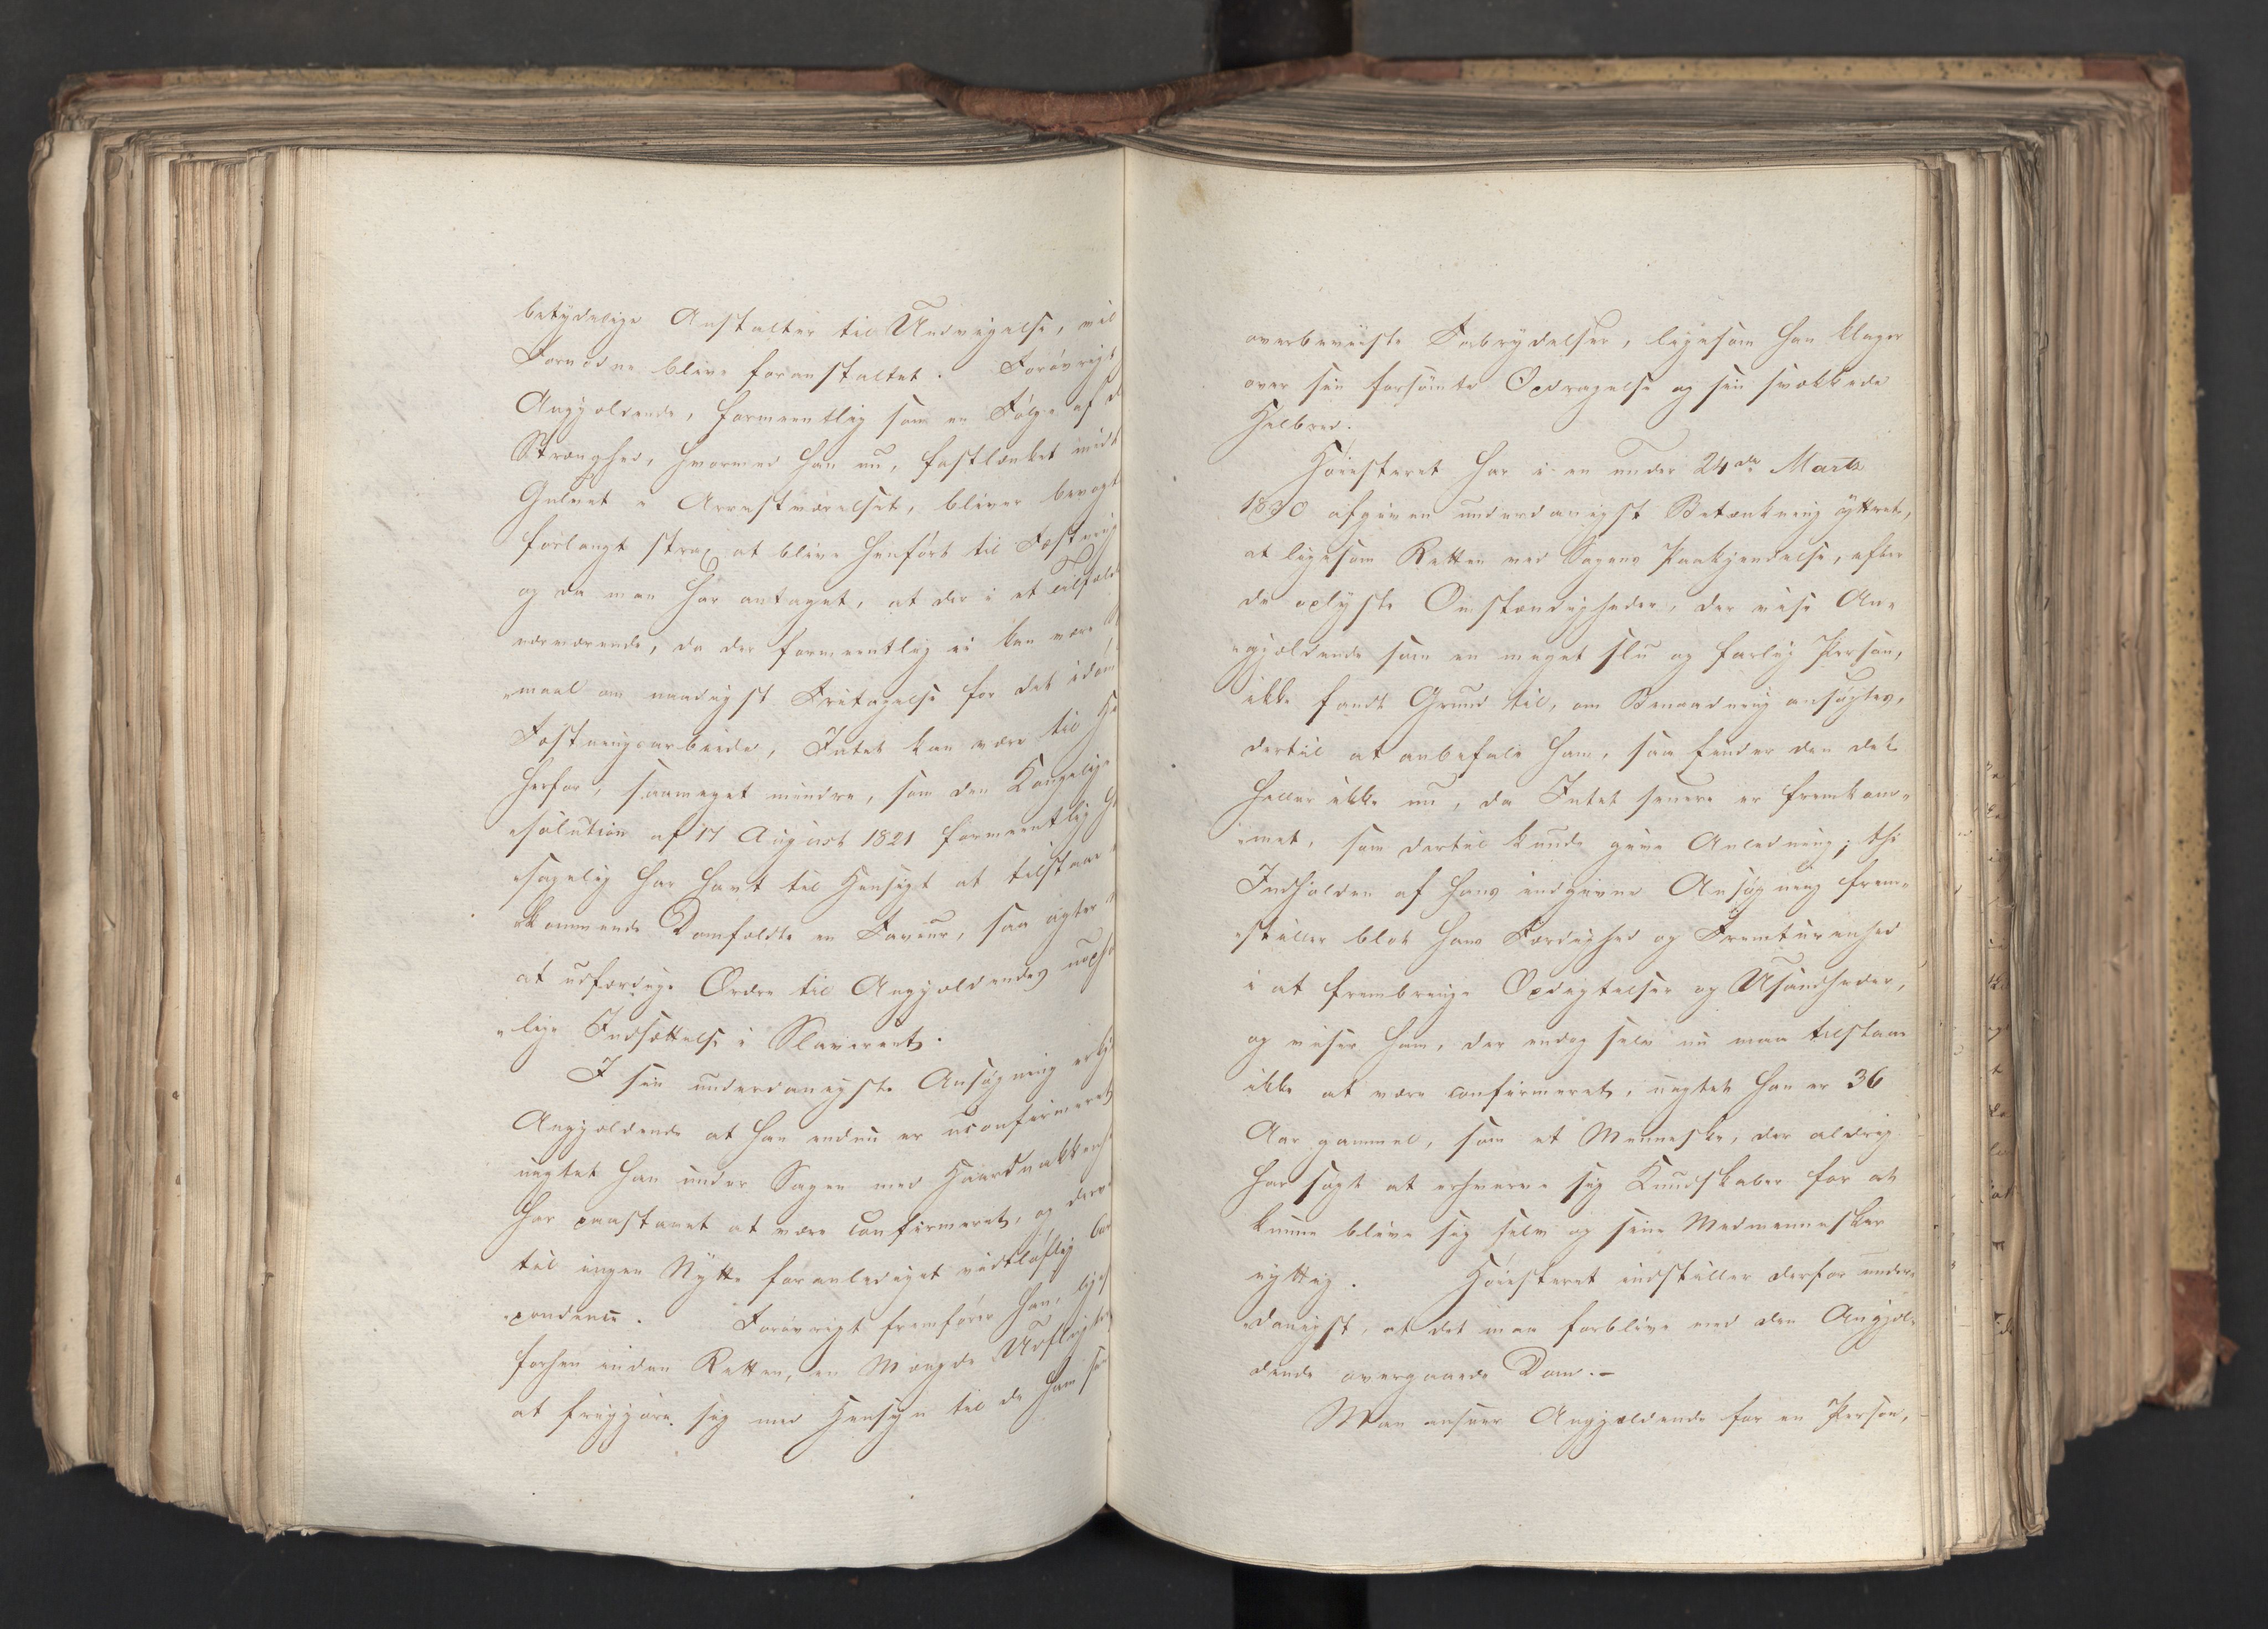 betydelige Anstalter til Undvigelse, vil
Fornødne blive foranstaltet. Forøvrigt
Angjældende, formeentlig som en Følge af d
Strænghed, hvormed han nu, fastlænket midt
Gulvet i Arrestværelset, bliver bevogt
forlangt strax at blive henført til Fæstning
og da man har antaget, at der i et Tilfælde
nærværende, da der formeentlig ei kan være
"maal om naadigst Fritagelse for det idøm
Fæstningsarbeide, Intet kan være til H
herfor, saameget mindre, som den Kongelige
esolution af 17 August 1821 formeentlig
esagelig har havt til Hensigt at tilstaae
"kommende Domfældte en Faveur, saa agter
at udfærdige Ordre til Angjældendes uoph
"lige Indsættelse i Slaveriet.
I sin underdanigste Ansøgning erkj
Angjældende at han endnu er uconfirmeret
uagtet han under Sagen med Haardnakkenh
har paastaaet at være confirmeret, og derv
til ingen Nytte foranlediget vidtløftig Cor
"pondence. Forøvrigt fremfører han, liges
forhen inden Retten, en Mængde Udflugter
at friggjøre sig med Hensyn til de ham
overbeviiste Forbrydelser, ligesom han klager
over sin forsømte Opdragelse og sin svækkede
Helbred.
Høiesteret har i en under 24de Marts
1830 afgiven underdanigst Betænkning yttret,
at ligesom Retten ved Sagens Paakjendelse, efter
de oplyste Omstændigheder, der vise An-
"gjældende som en meget slu og farlig Person,
ikke fandt Grund til, om Benaadning ansøgtes,
dertil at anbefale ham, saa finder den det
heller ikke nu, da Intet senere er fremkom-
"met, som dertil kunde give Anledning; thi
Indholdet af hans indgivne Ansøgning frem-
"stiller blot hans Færdighed og Fremturenhed
i at frembringe Opdigtelser og Usandheder,
og viser ham, der endog selv nu maa tilstaae
ikke at være confirmeret, uagtet han er 36
Aar gammel, som et Menneske, der aldrig
har søgt at erhverve sig Kundskaber for at
kunne blive sig selv og sine Medmennesker
nyttig. Høiesteret indstiller derfor under-
"danigst, at det maa forblive ved den Angjæl-
dende overgaaede Dom.-
Man anseer Angjældende for en Person,